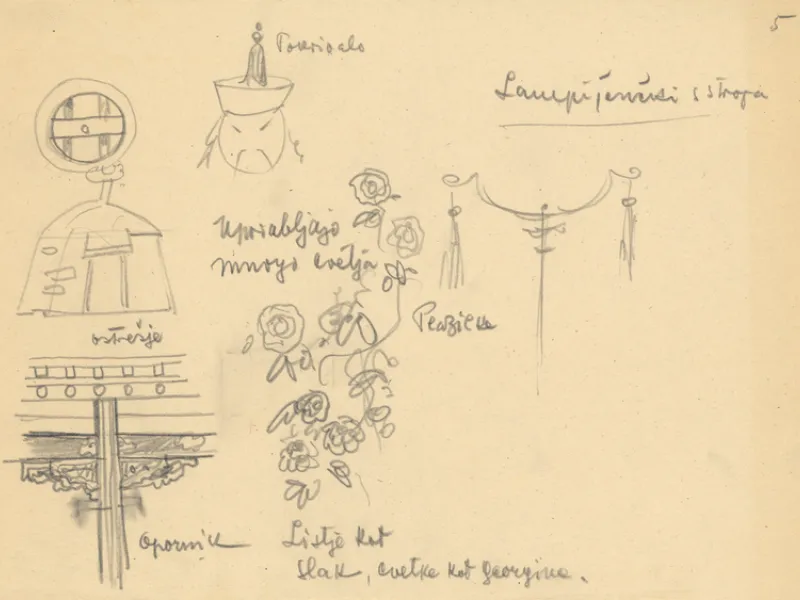 5
Pokrivalo
Lampijončki s stropa
Uporabljajo
mnogo cvetja
ostrešje
Opornik
Listje kot
slak, cvetke kot georgine.